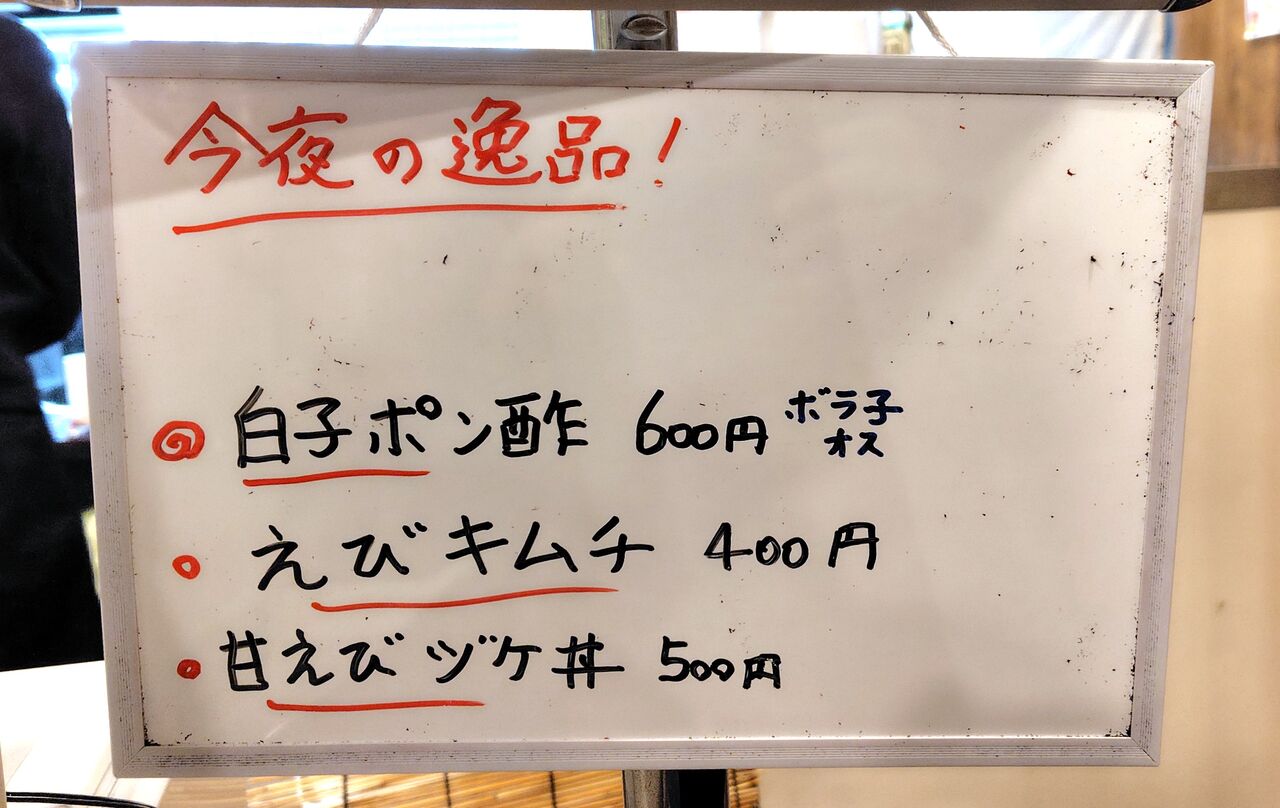 今夜の逸品!
白子ポン酢 600円 ボラ子
オス
えびキムチ 400円
甘えびヅケ丼 500円